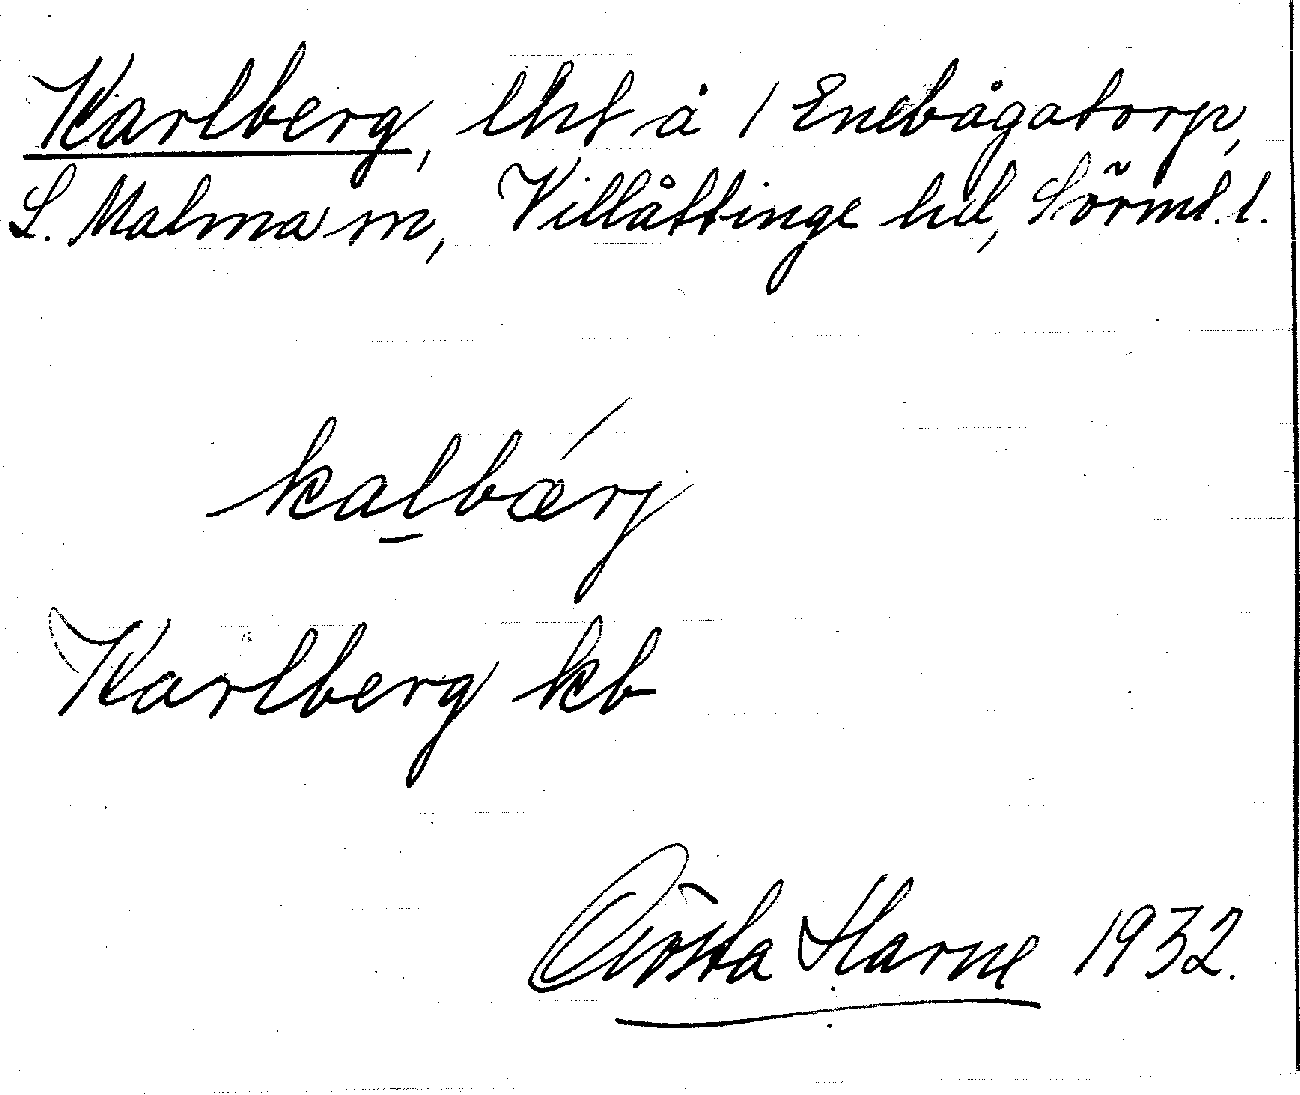 Karlberg, lht å 1 Enebågatorp,
L. Malma sn, Villåttinge hd, Sörml. l.
kalbærj
Karlberg kb
Gösta Harne 1932.